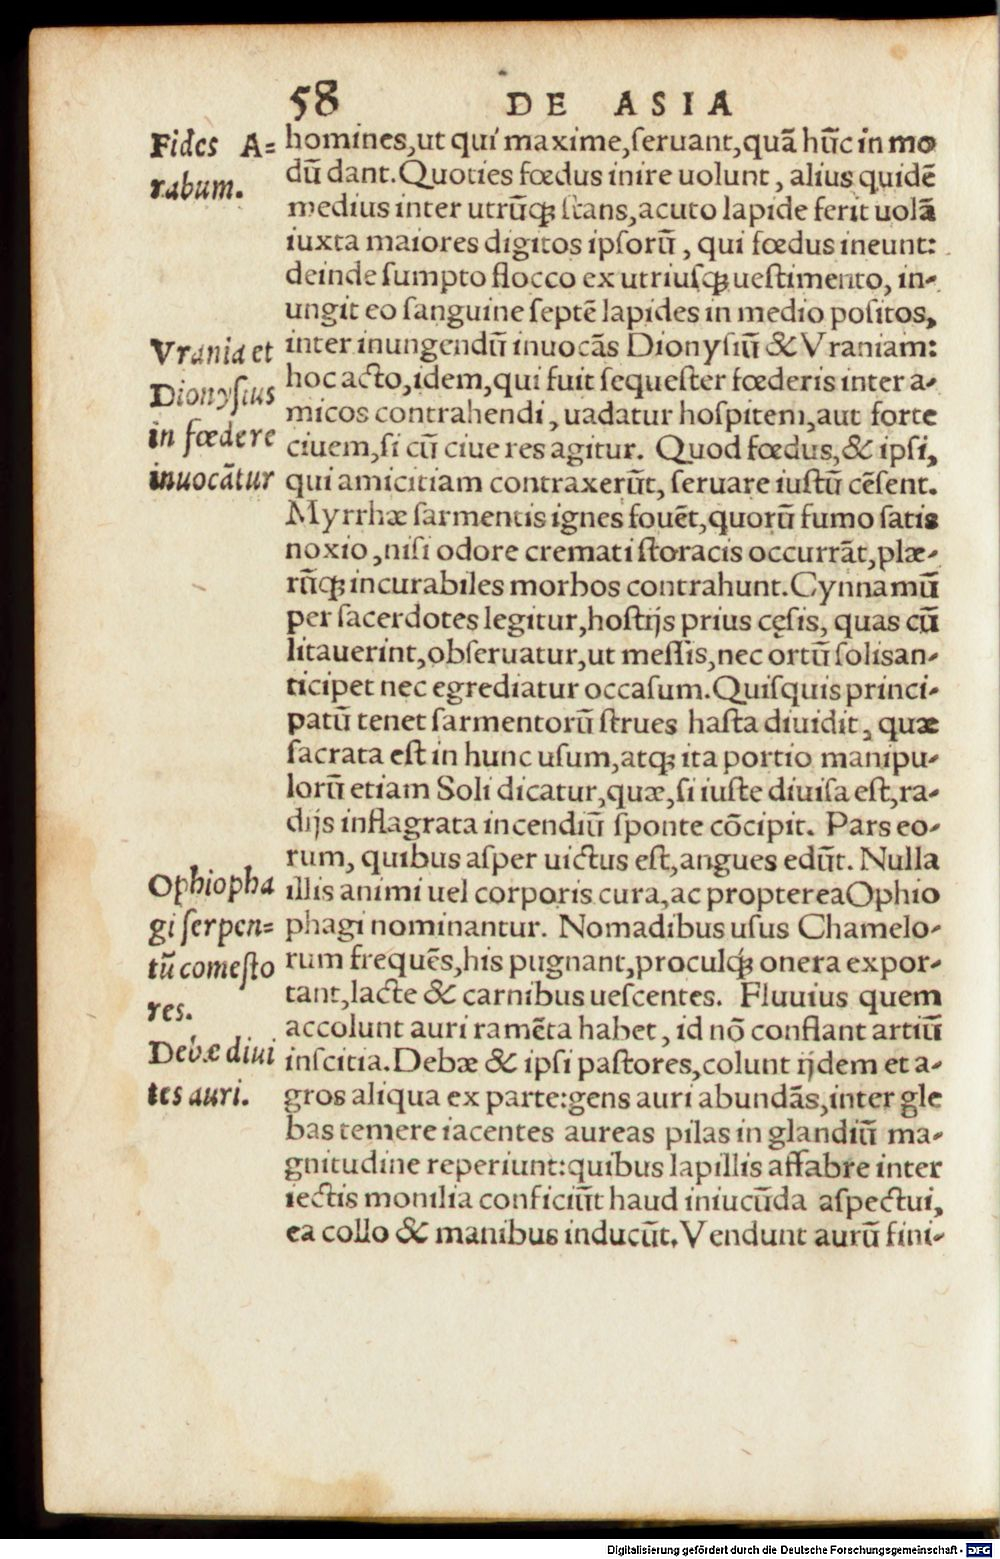 58 DE ASIA
Fides A=
rabum.
homines,ut qui maxime,ſeruant,quã hũc in mo
dũ dant.Quoties fœdus inire uolunt, alius quidẽ
medius inter utrũq; ſtans,acuto lapide ferit uolã
iuxta maiores digitos ipſorũ, qui fœdus ineunt:
deinde ſumpto flocco ex utriuſq; ueſtimento, in-
ungit eo ſanguine ſeptẽ lapides in medio poſitos,
Vrania et
Dionyſius
in fœdere
inuocãtur
inter inungendũ inuocãs Dionyſiũ & Vraniam:
hoc acto,idem,qui fuit ſequeſter fœderis inter a-
micos contrahendi, uadatur hoſpitem,aut forte
ciuem,ſi cũ ciue res agitur. Quod fœdus,& ipſi,
qui amicitiam contraxerũt, ſeruare iuſtũ cẽſent.
Myrrhæ ſarmentis ignes fouẽt,quorũ fumo ſatis
noxio,niſi odore cremati ſtoracis occurrãt,plæ-
rũq; incurabiles morbos contrahunt.Cynnamũ
per ſacerdotes legitur,hoſtijs prius cęſis, quas cũ
litauerint,obſeruatur,ut meſſis,nec ortũ ſolis an-
ticipet nec egrediatur occaſum.Quiſquis princi-
patũ tenet ſarmentorũ ſtrues haſta diuidit, quæ
ſacrata eſt in hunc uſum,atq; ita portio manipu-
lorũ etiam Soli dicatur,quæ,ſi iuſte diuiſa eſt,ra-
dijs inflagrata incendiũ ſponte cõcipit. Pars eo-
rum, quibus aſper uictus eſt,angues edũt. Nulla
Ophiopha
gi ſerpen=
tũ comeſto
res.
illis animi uel corporis cura,ac propterea Ophio
phagi nominantur. Nomadibus uſus Chamelo-
rum frequẽs,his pugnant,proculq; onera expor-
tant,lacte & carnibus ueſcentes. Fluuius quem
accolunt auri ramẽta habet, id nõ conflant artiũ
Debæ diui
tes auri.
inſcitia.Debæ & ipſi paſtores,colunt ijdem et a-
gros aliqua ex parte:gens auri abundãs,inter gle
bas temere iacentes aureas pilas in glandiũ ma-
gnitudine reperiunt:quibus lapillis affabre inter
iectis monilia conficiũt haud iniucũda aſpectui,
ea collo & manibus inducũt. Vendunt aurũ fini-
Digitalisierung gefördert durch die Deutsche Forschungsgemeinschaft - DFG